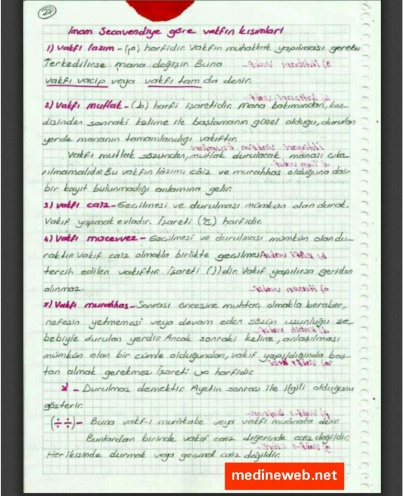 22
İmam Secavendiye göre vakfın kısımları
1) Vakfı lazım - (م) harfidir. Vakfın muhakkak yapılması gerekir
Terkedilirse mana değişir. Buna
vakfı vacip veya vakfı tam da denir.
2) Vakfı mutlak - (ط) harfi işaretidir. mana bakımından, ken
disinden sonraki kelime ile başlamanın güzel olduğu, durulan
yerde mananın tamamlandığı vakıftır.
Vakfı mutlak sözünden, mutlak durulacak manası çıka
rılmamalıdır. Bu vakfın lazım, caiz ve murahhas olduğuna dair
bir kayıt bulunmadığı anlamına gelir.
3) Vakfı caiz - Geçilmesi ve durulması mümkün olan durak.
Vakıf yapmak evladır. İşareti (ج) harfidir.
4) Vakfı mücevvez - Geçilmesi ve durulması mümkün olan du-
raktır. Vakıf caiz olmakla birlikte geçilmesi
tercih edilen vakıftır. İşareti (ز) dir. Vakıf yapılırsa geriden
alınmaz.
5) Vakfı murahhas - Sonrası öncesine muhtaç olmakla beraber,
nefesin yetmemesi veya devam eden sözün uzunluğu se
bebiyle durulan yerdir. Ancak sonraki kelime, anlaşılması
mümkün olan bir cümle olduğundan, vakıf yapıldığında baş-
tan almak gerekmez. İşareti ص harfidir.
لا - Durulmaz demektir. Ayetin sonrası ile ilgili olduğunu
gösterir.
(∴ ∴) - Buna vakf-ı murakabe veya vakfı muanaka denir.
Bunlardan birinde vakıf caiz diğerinde caiz değildir.
Her ikisinde durmak veya geçmek caiz değildir.
medineweb.net